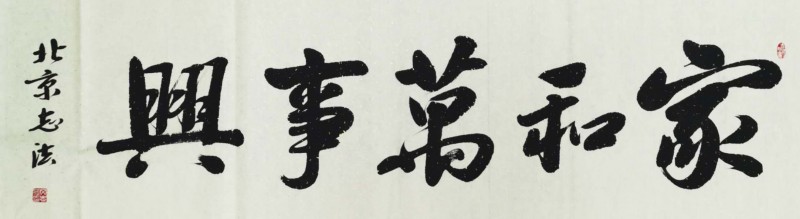 家和萬事興
北京志法